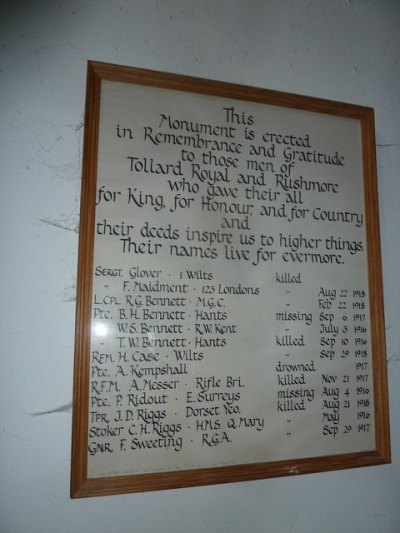 This
Monument is erected
in Remembrance and Gratitude
to those men of
Tollard Royal and Rushmore
who gave their all
for King, for Honour, and for Country
and
their deeds inspire us to higher things.
Their names live for evermore.
Sergt. Glover · 1 Wilts killed
" F. Maidment · 123 Londons " Aug 22 1918
L.Cpl. R.G. Bennett · M.G.C. " Feb 22 1918
Pte. B.H. Bennett · Hants missing Sep 6 1917
" W.S. Bennett · R.W. Kent " July 3 1916
" T.W. Bennett · Hants killed Sep 10 1916
Rfm. H. Case · Wilts " Sep 29 1918
Pte. A. Kempshall drowned 1917
R.F.M. A. Messer · Rifle Bri. killed Nov 21 1917
Pte. P. Ridout · E. Surreys missing Aug 4 1916
Tpr. J.D. Riggs · Dorset Yeo. killed Aug 21 1918
Stoker C.H. Riggs · H.M.S. Q. Mary " May 1916
Gnr. F. Sweeting · R.G.A. " Sep 29 1917